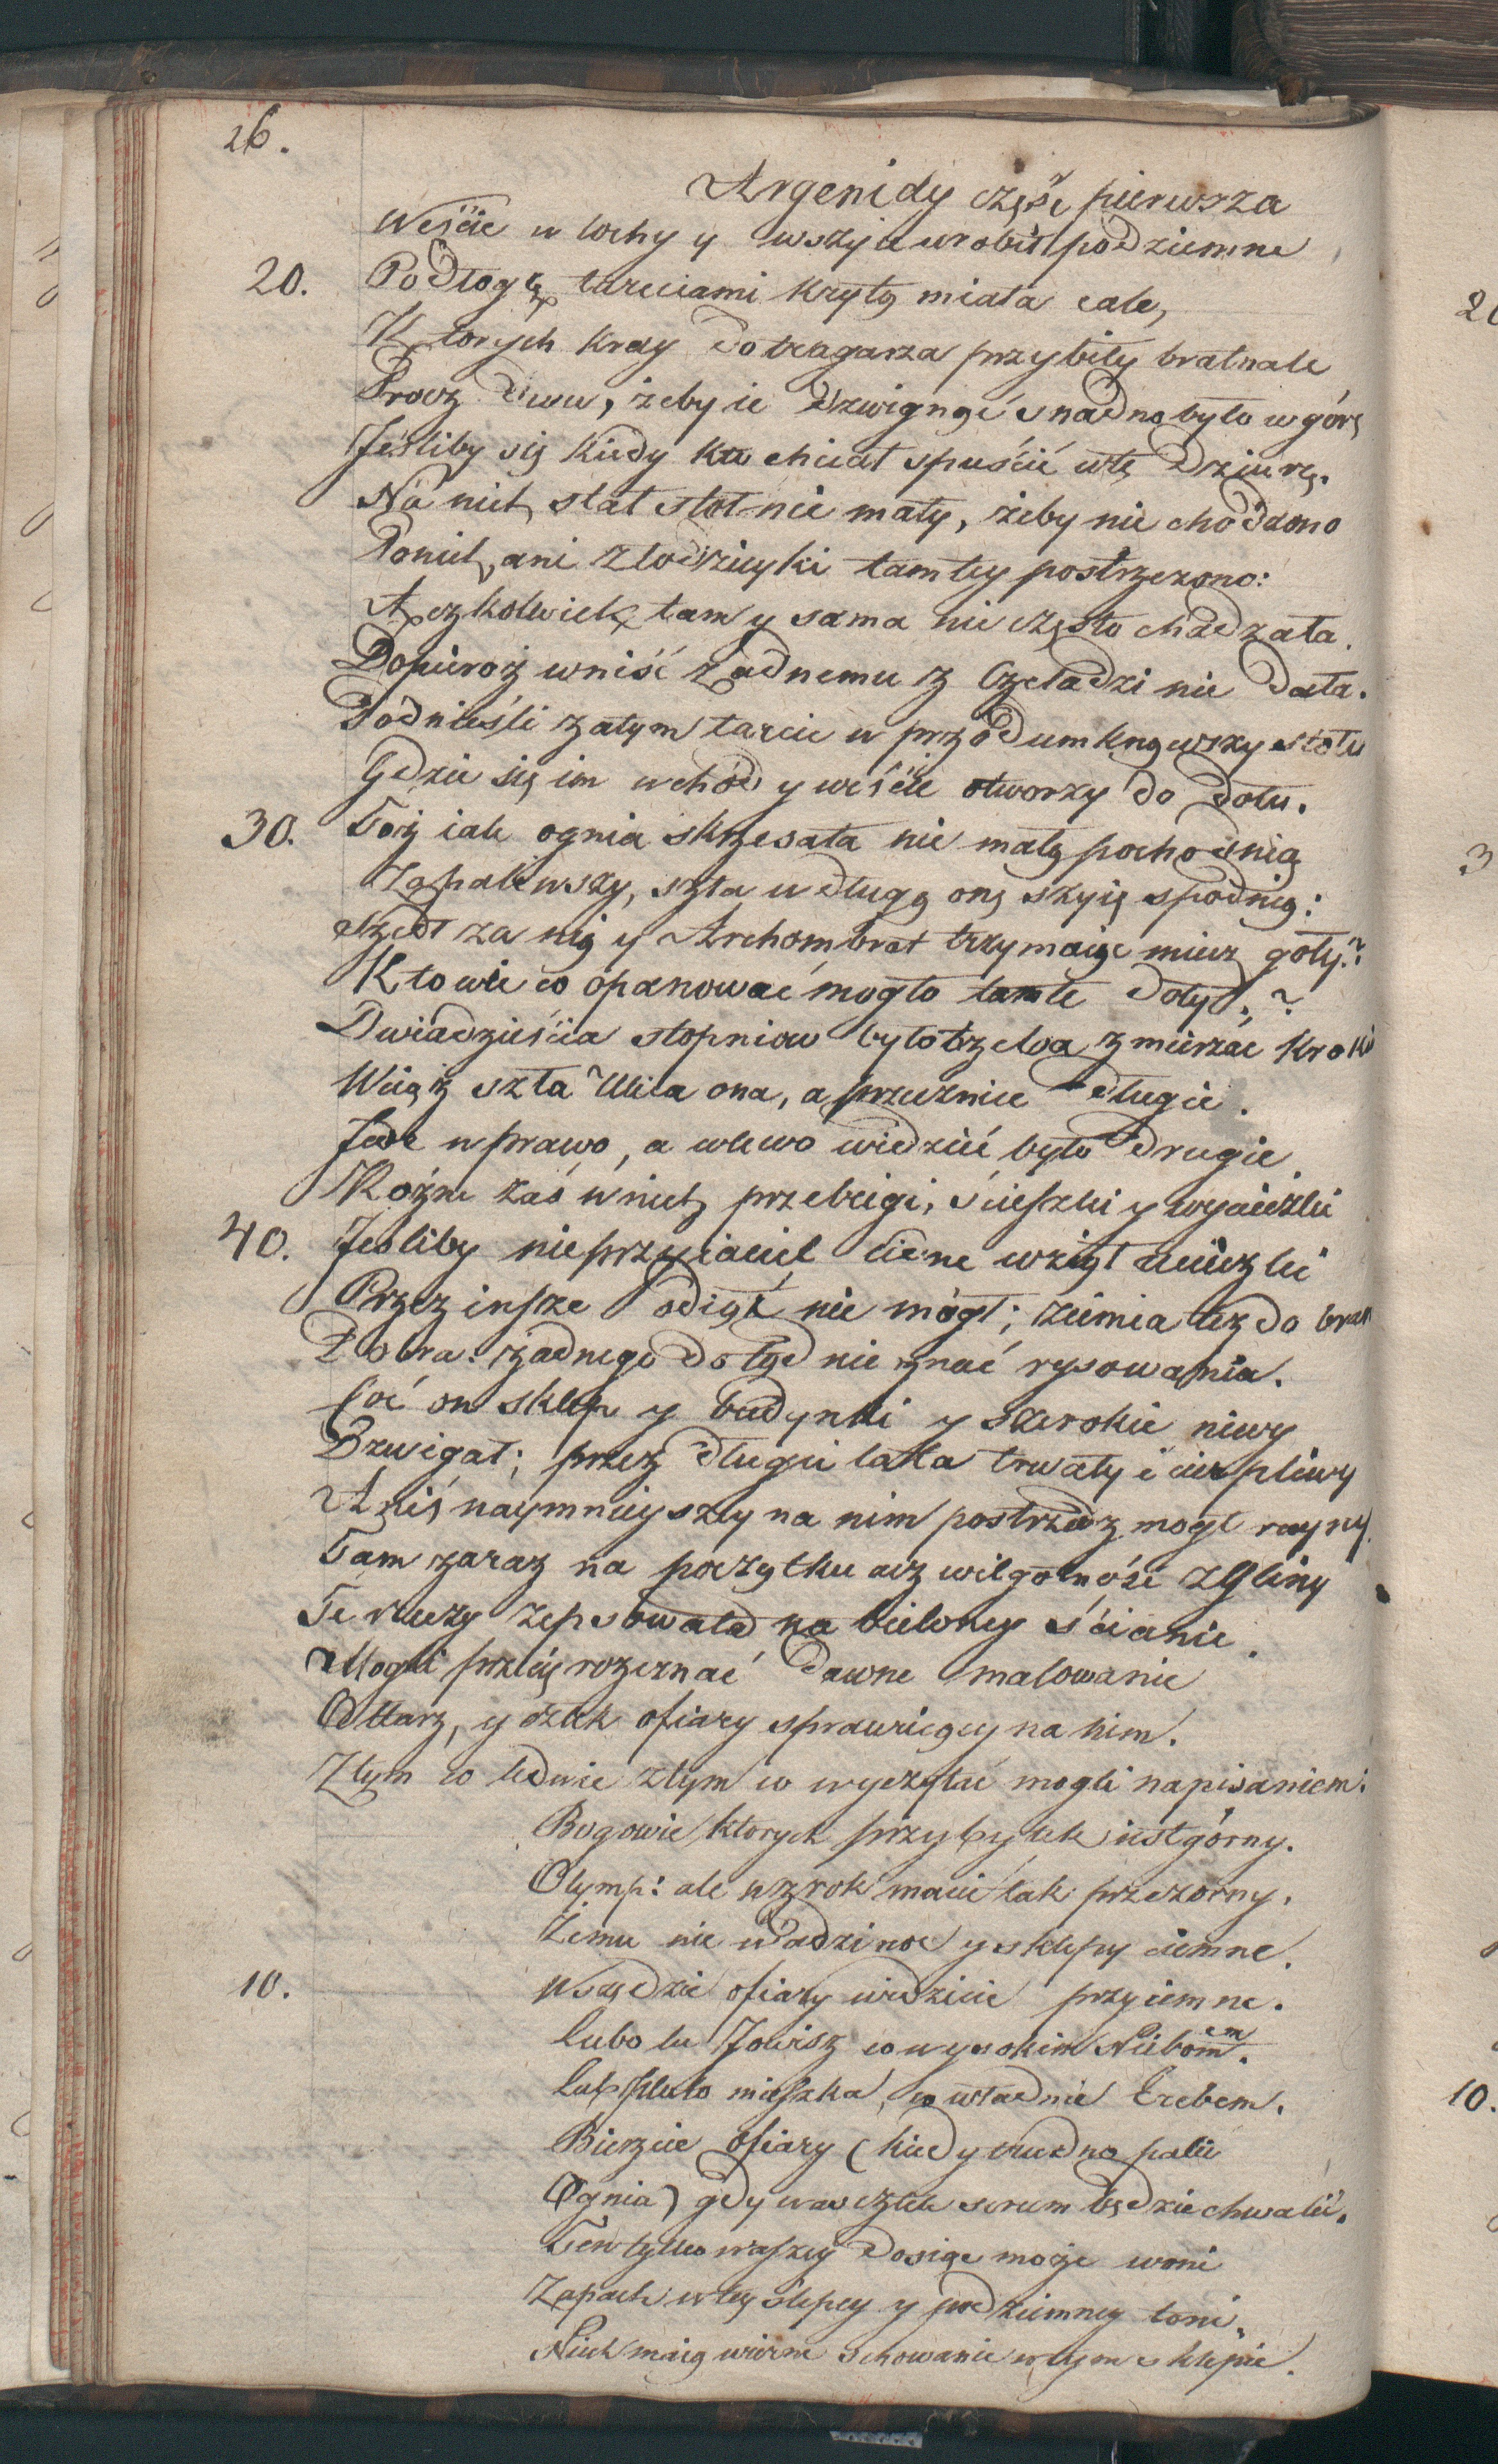 26.
Argenidy część pierwsza
Weście w lochy y wszyie urobił podziemne
20. Podłogę tarciami krytą miała cale,
Ktorych kray do tragarza przybiły bratnale
Procz dwu, żeby ie dzwignąć snadno było w górę
Jeśliby się kiedy kto chciał spuścić w tę dziurę.
Na nich stał stoł nie mały, żeby nie chodzono
Ponich, ani złodzieyki tamtey postrzeżono:
Aczkolwiek tam y sama nie często chadzała.
Dopieroż wniść żadnemu z Czeladzi nie dała.
Podnieśli zatym tarcie w przód umknąwszy stołu
Gdzie się im wchód y weście otworzy do dołu.
30. Toż iak ognia skrzesała nie małą pochodnią
Zapaliwszy, szła w długą onę szyię spodnią:
Szedł za nią y Archombrot trzymaiąc miecz goły:
Kto wie co opanować mogło tamte doły. ?
Dwiadzieścia stopniow było trzeba zmierzać kroki
Wciąż szła Ulica ona, a przecznice długie.
Jedne w prawo, a w lewo widzieć było drugie.
Rożne zaś w nich przebiegi, ścieszki y wycieczki
40. Jeśliby nieprzyiaciel iedne wziął ucieczki
Przez insze odiąć nie mógł; ziemia też do bran
Dobra: żadnego dotąd nie znać rysowania.
Coć on sklep y budynki y szerokie niwy
Dzwigał; przez długie lata trwały i cierpliwy
Aniś naymnieyszey na nim postrzedz mogł rayny.
Tam zaraz na początku acz wilgotność z gliny
Te rzeczy zepsowała na bieloney ścianie.
Mogli przecię rozeznać dawne malowanie
Ołtarz, y człek ofiary sprawuiący na nim.
Z tym co ledwie z tym co wyczytać mogli napisaniem:
Bogowie, ktorych przybytek iest górny.
Olymp: ale wzrok macie tak przezorny.
Żemu nie wadzi noc y sklepy ciemne.
10. Wszędzie ofiary widzicie przyiemne.
Lubo tu Jowisz co wysokim Niebom em.
Lub Pluto mieszka, co władnie Erebem.
Bierzcie ofiary (kiedy trudno palić
Ognia) gdy was człek sercem będzie chwalić.
Ten tylko waszey dosiąc może woni
Zapach w tey ślepey y podziemney toni.
Niech maią wierne schowanie w tym sklepie.